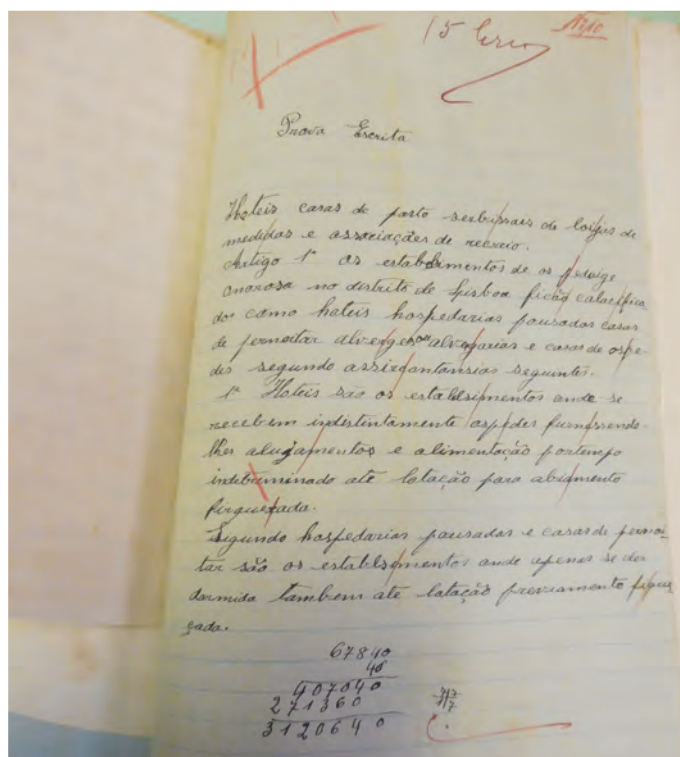 15
Prova Escrita
Hoteis casas de pasto serbissais de loijas de
medidas e associações de recreio.
Artigo 1º os establsimentos de os
no distrito de Lisboa ficão
dos como hoteis hospedarias pousadas casas
de pernoitar alvergarias e casas de ospe-
des segundo seguintes.
1º Hoteis são os estabelsimentos onde se
recebem indistintamente ospedes furnessendo
lher alujamentos e alimentação portempo
indetruminado até lotação para
Segundo hospedarias pousadas e casas de pernoi-
tar são os establsimentos onde apenas se der
dormida tambem até lotação previamente
çada.
67840
46
407040
271360
3120640